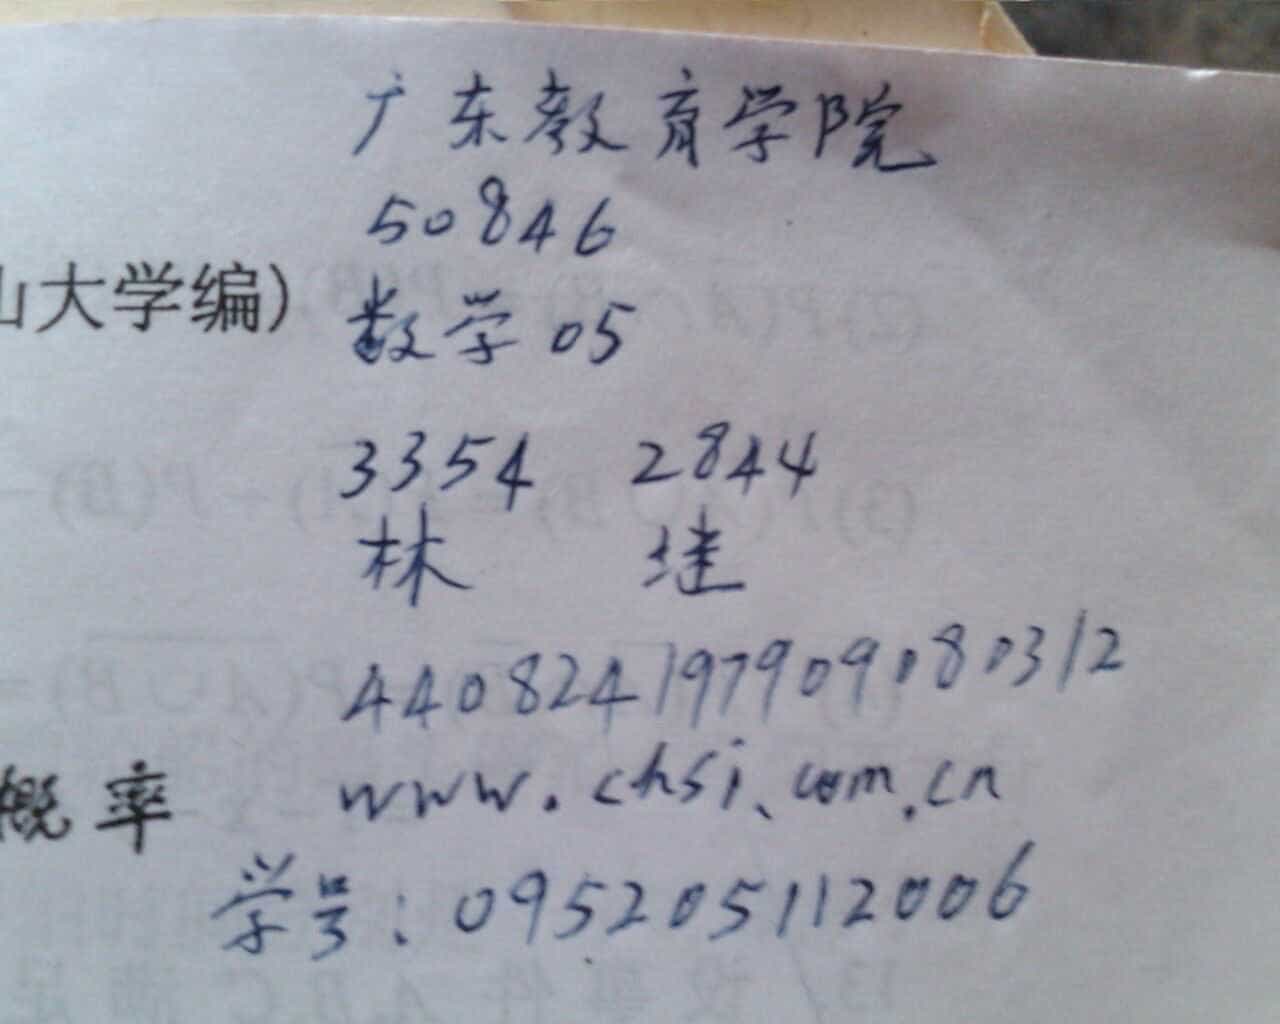 广东教育学院
50846
山大学编) 数学05
3354 2844
林 琎
440824197909080312
概率 www.chsi.com.cn
学号:095205112006